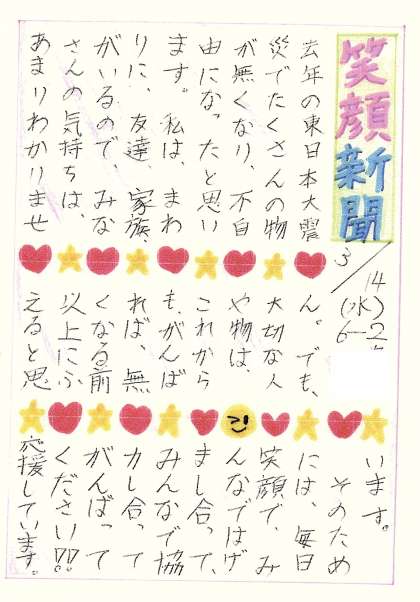 笑顔新聞
3/14
(水)
6-2
去年の東日本大震
災でたくさんの物
が無くなり、不自
由になったと思い
ます。私は、まわ
りに、友達、家族、
がいるので、みな
さんの気持ちは、
あまりわかりませ
ん。でも、
大切な人
や物は、
これから
も、がんば
れば、無
くなる前
以上にふ
えると思
います。
そのため
には、毎日
笑顔で、み
んなではげ
まし合って、
みんなで協
力し合って
がんばって
ください!!
応援しています。